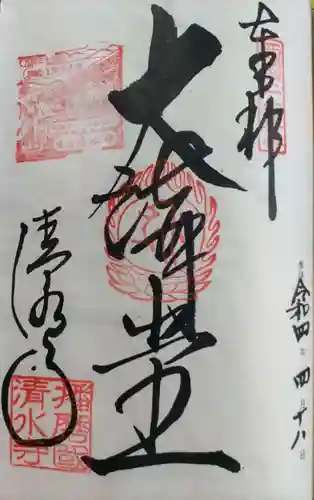 奉拝
大講堂
清水寺
播磨國
清水寺
令和四年四月十八日